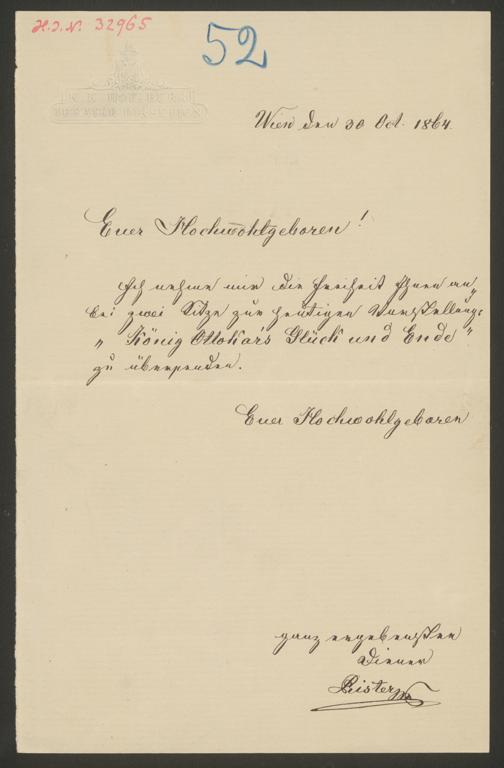 H.I.N. 32965
52
Wien den 30 Oct. 1864.
Euer Hochwohlgeboren!
Ich nehme mir die Freiheit Ihnen an„
bei zwei Sitze zur heutigen Vorstellung:
„König Ottokar's Glück und Ende"
zu übersenden.
Euer Hochwohlgeboren
ganz ergebenster
Diener